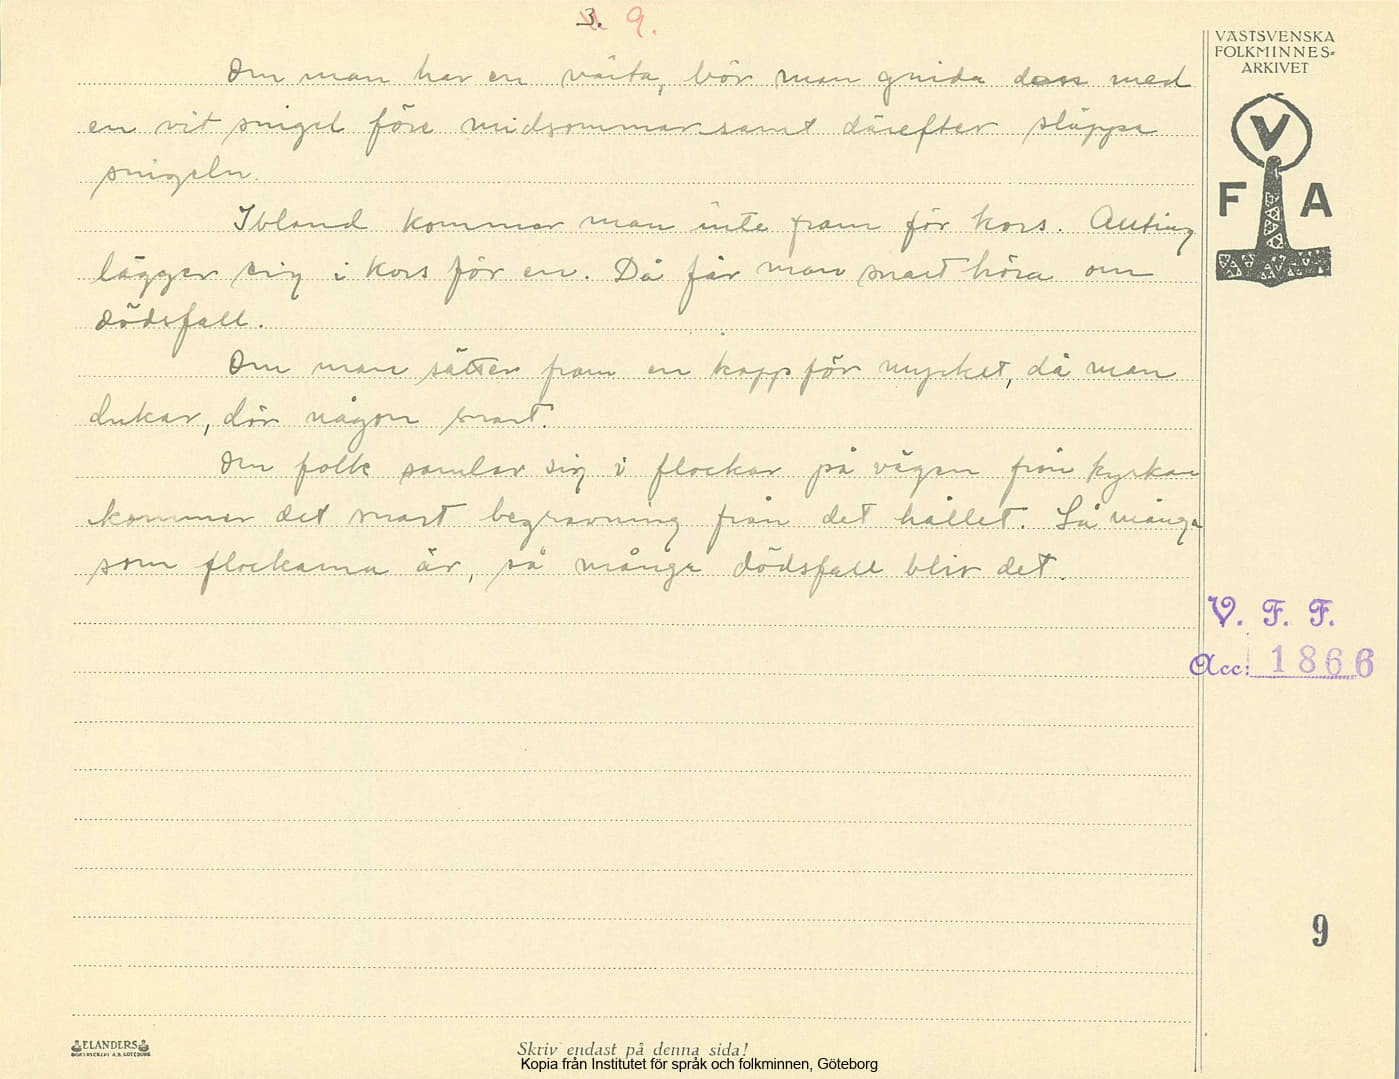 3. 9.
VÄSTSVENSKA
FOLKMINNES-
ARKIVET
V
F A
Om man har en vårta, bör man gnida den med
en vit snigel före midsommar samt därefter släppa
snigeln.
Ibland kommer man inte fram för kors. Allting
lägger sig i kors för en. Då får man snart höra om
dödsfall.
Om man sätter fram en kopp för mycket, då man
dukar, dör någon snart.
Om folk samlar sig i flockar på vägen från kyrkan
kommer det snart begravning från det hållet. Så många
som flockarna är, så många dödsfall blir det.
V. F. F.
Acc: 1866
9
ELANDERS
BOKTRYCKERI A.B. GÖTEBORG
Skriv endast på denna sida!
Kopia från Institutet för språk och folkminnen, Göteborg